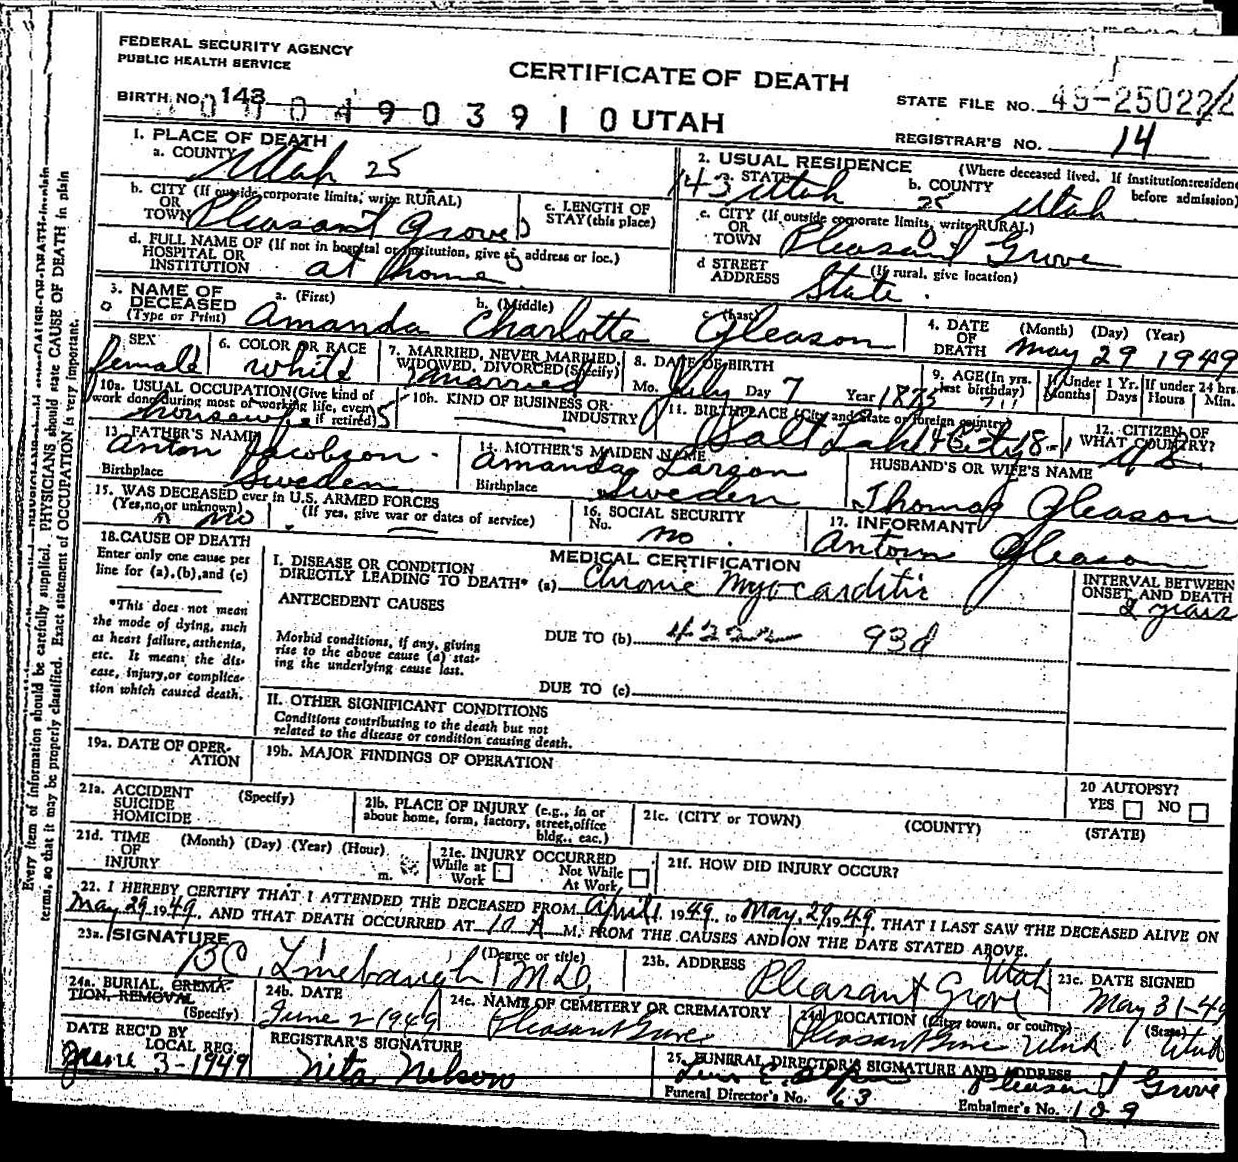 FEDERAL SECURITY AGENCY
PUBLIC HEALTH SERVICE
CERTIFICATE OF DEATH
BIRTH NO. 143
0 4 9 0 3 9 1 0 UTAH
STATE FILE NO. 49-25022
REGISTRAR'S NO. 14
1. PLACE OF DEATH
a. COUNTY Utah 25
b. CITY (If outside corporate limits, write RURAL)
OR
TOWN Pleasant Grove
c. LENGTH OF
STAY (this place)
d. FULL NAME OF (If not in hospital or institution, give st. address or loc.)
HOSPITAL OR
INSTITUTION at home
2. USUAL RESIDENCE (Where deceased lived. If institution:residence
before admission)
143 a. STATE Utah b. COUNTY 25 Utah
c. CITY (If outside corporate limits, write RURAL)
OR
TOWN Pleasant Grove
d STREET
ADDRESS (If rural, give location)
State.
3. NAME OF
DECEASED
(Type or Print)
a. (First) b. (Middle) c. (Last)
Amanda Charlotte Gleason
4. DATE
OF
DEATH
(Month) (Day) (Year)
May 29 1949
SEX
female
6. COLOR OR RACE
white
7. MARRIED, NEVER MARRIED,
WIDOWED, DIVORCED(Specify)
married
8. DATE OF BIRTH
Mo. July Day 7 Year 1875
9. AGE(In yrs.
last birthday)
If Under 1 Yr.
Months Days
If under 24 hrs.
Hours Min.
10a. USUAL OCCUPATION(Give kind of
work done during most of working life, even
if retired)
housewife
10b. KIND OF BUSINESS OR
INDUSTRY
11. BIRTHPLACE (City and State or foreign country)
Salt Lake City
12. CITIZEN OF
WHAT COUNTRY?
U.S.
13. FATHER'S NAME
Anton Jacobson
Birthplace Sweden
14. MOTHER'S MAIDEN NAME
Amanda Larson
Birthplace Sweden
HUSBAND'S OR WIFE'S NAME
Thomas Gleason
15. WAS DECEASED ever in U.S. ARMED FORCES
(Yes,no,or unknown) (If yes, give war or dates of service)
no
16. SOCIAL SECURITY
No. no.
17. INFORMANT
Antoin Gleason
18.CAUSE OF DEATH
Enter only one cause per
line for (a),(b),and (c)
*This does not mean
the mode of dying, such
as heart failure, asthenia,
etc. It means the dis-
ease, injury, or complica-
tion which caused death.
MEDICAL CERTIFICATION
I. DISEASE OR CONDITION
DIRECTLY LEADING TO DEATH* (a) Chronic Myocarditis
INTERVAL BETWEEN
ONSET AND DEATH
2 years
ANTECEDENT CAUSES
Morbid conditions, if any, giving
rise to the above cause (a) stat-
ing the underlying cause last.
DUE TO (b) 93d
DUE TO (c)
II. OTHER SIGNIFICANT CONDITIONS
Conditions contributing to the death but not
related to the disease or condition causing death.
19a. DATE OF OPER-
ATION
19b. MAJOR FINDINGS OF OPERATION
20 AUTOPSY?
YES NO
21a. ACCIDENT
SUICIDE
HOMICIDE
(Specify)
21b. PLACE OF INJURY (e.g., in or
about home, form, factory, street,office
bldg., eac.)
21c. (CITY or TOWN) (COUNTY) (STATE)
21d. TIME
OF
INJURY
(Month) (Day) (Year) (Hour)
m.
21e. INJURY OCCURRED
While at
Work
Not While
At Work
21f. HOW DID INJURY OCCUR?
22. I HEREBY CERTIFY THAT I ATTENDED THE DECEASED FROM April 1, 1949, to May, 29, 1949, THAT I LAST SAW THE DECEASED ALIVE ON
May 29, 1949, AND THAT DEATH OCCURRED AT 10 A M. FROM THE CAUSES AND ON THE DATE STATED ABOVE.
23a. SIGNATURE (Degree or title)
BC, Linebaugh MD,
23b. ADDRESS
Pleasant Grove Utah
23c. DATE SIGNED
May 31-49
24a. BURIAL, CREMA-
TION, REMOVAL
(Specify)
24b. DATE
June 2 1949
24c. NAME OF CEMETERY OR CREMATORY
Pleasant Grove
24d. LOCATION (City town, or county) (State)
Pleasant Grove Utah Utah
DATE REC'D BY
LOCAL REG.
June 3-1949
REGISTRAR'S SIGNATURE
Nita Nelson
25. FUNERAL DIRECTOR'S SIGNATURE AND ADDRESS
Pleasant Grove
Funeral Director's No. 63 Embalmer's No. 109
Every item of information should be carefully supplied. PHYSICIANS should state CAUSE OF DEATH in plain
terms, so that it may be properly classified. Exact statement of OCCUPATION is very important.